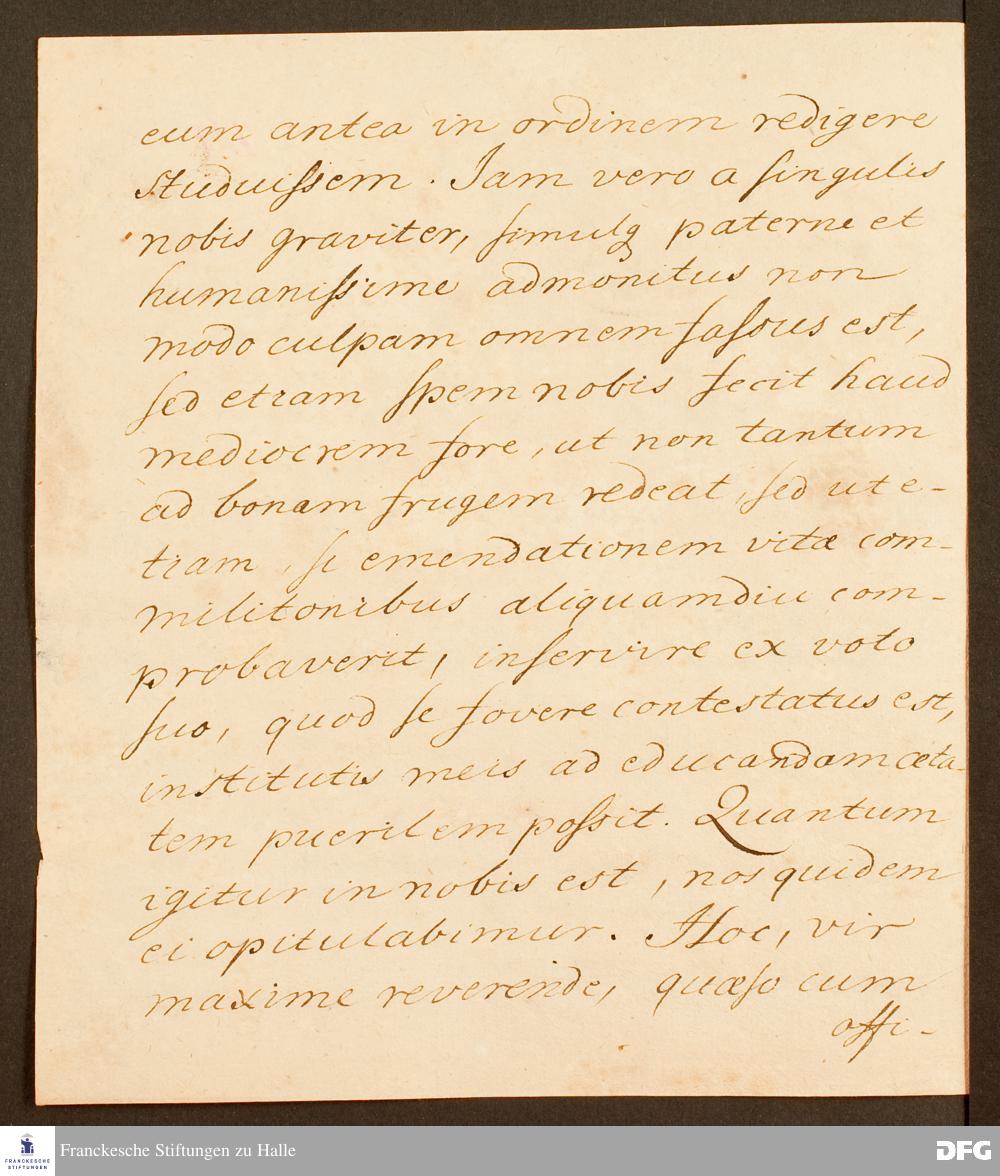 eum antea in ordinem redigere
studuissem. Jam vero a singulis
nobis graviter, simulq paterne et
humanissime admonitus non
modo culpam omnem fassus est,
sed etiam spem nobis fecit haud
mediocrem fore, ut non tantum
ad bonam frugem redeat, sed ut e-
tiam, si emendationem vitæ com-
militonibus aliquamdiu com-
probaverit, inservire ex voto
suo, quod se fovere contestatus est,
institutis meis ad educandam æta-
tem puerilem possit. Quantum
igitur in nobis est, nos quidem
ei opitulabimur. Hoc, vir
maxime reverende, quæso cum
offi-
FRANCKESCHE STIFTUNGEN
Franckesche Stiftungen zu Halle
DFG